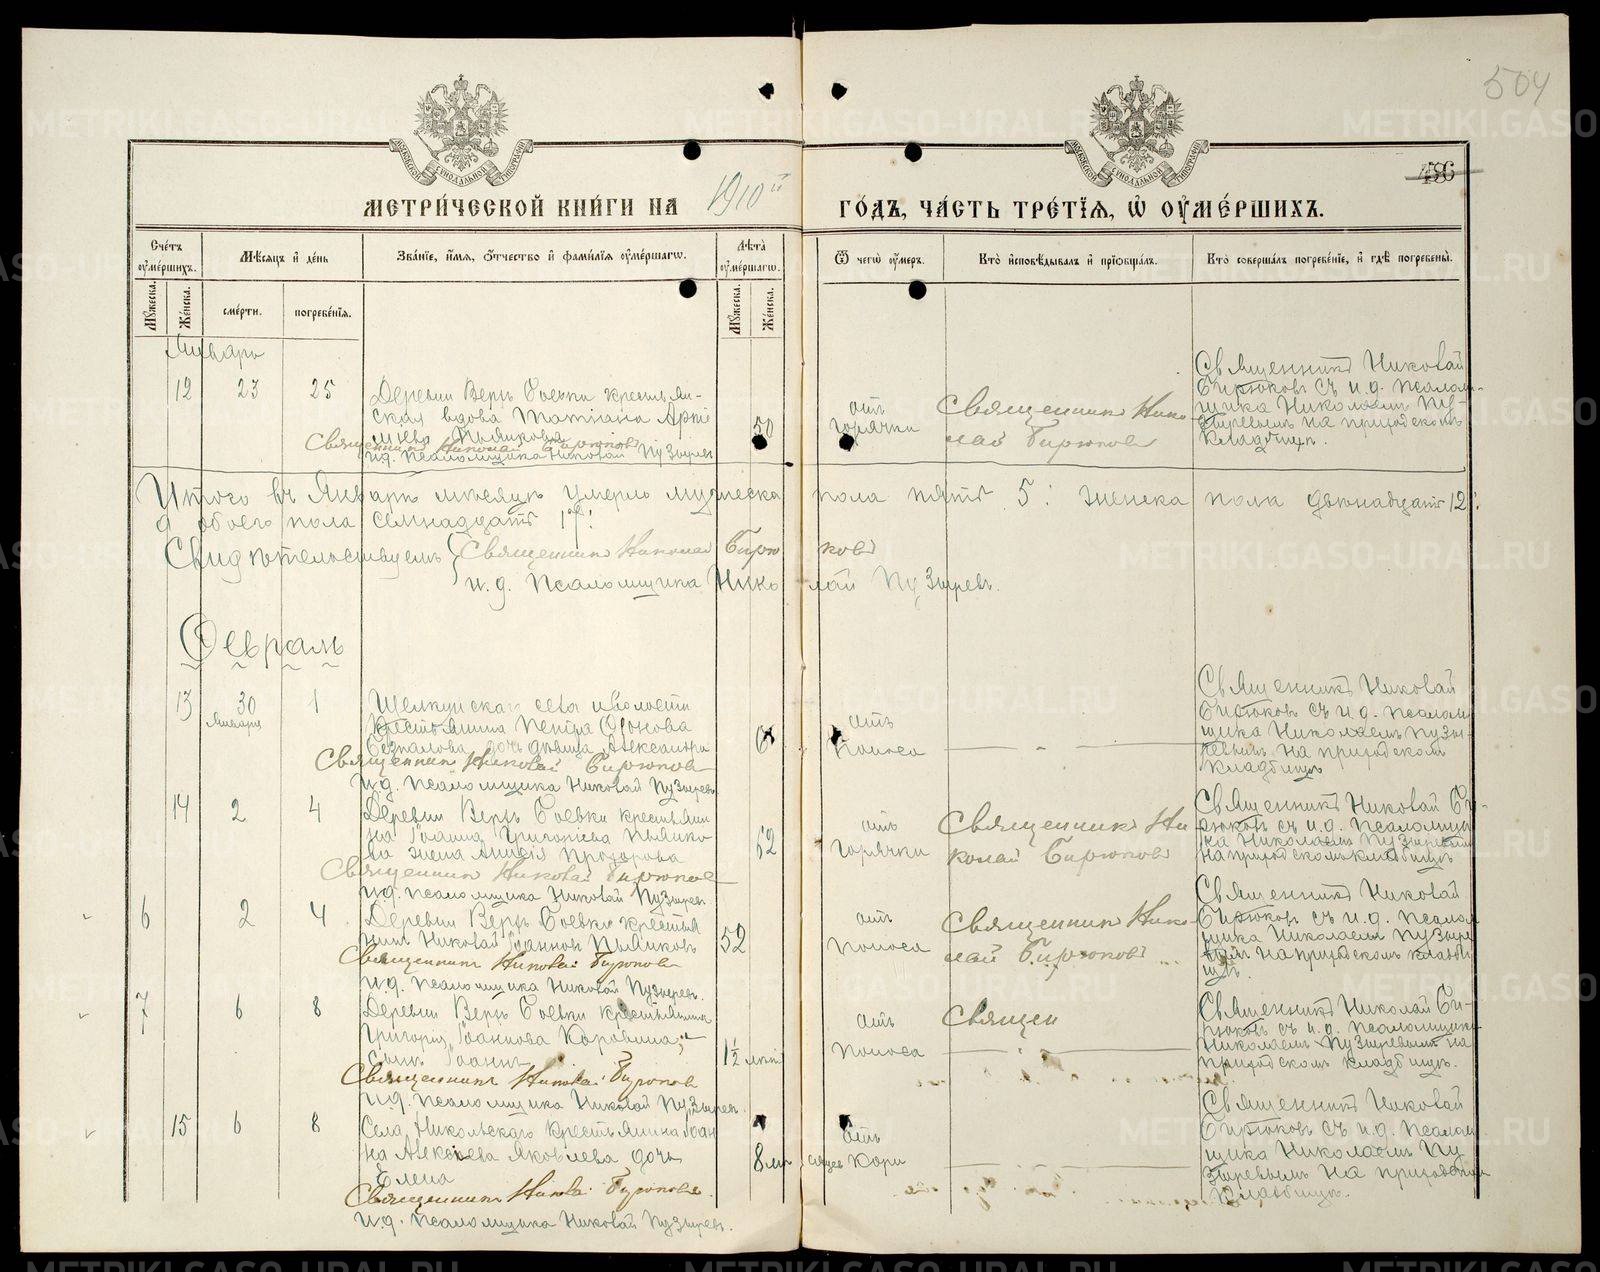 504
486
МОСКОВСКОЙ СУНОДАЛЬНОЙ ТИПОГРАФІИ
МОСКОВСКОЙ СУНОДАЛЬНОЙ ТИПОГРАФІИ
МЕТРИ́ЧЕСКОЙ КНИ́ГИ НА 1910й ГО́ДЪ, ЧА́СТЬ ТРЕ́ТІѦ, Ѡ ОУ҆МЕ́РШИХЪ.
Сче́тъ оу҆ме́ршихъ.
Мѣ́сѧцъ и҆ де́нь
Зва́нїе, и҆́мѧ, ѻ҆́тчество и҆ фами́лїѧ оу҆ме́ршагѡ.
Лѣ́та оу҆ме́ршагѡ.
Ѿ чегѡ̀ оу҆́меръ.
Кто̀ и҆сповѣ́дывалъ и҆ прїѡбща́лъ.
Кто̀ соверша́лъ погребе́нїе, и҆ гдѣ̀ погребены̀.
Мꙋ́жеска.
Же́нска.
сме́рти.
погребе́нїѧ.
Мꙋ́жеска.
Же́нска.
Январь
12 23 25
Деревни Верхъ Боевки крестьян-
ская вдова Татіана Арте
мьева Пьянкова
Священникъ Николай Бирюковъ
и.д. псаломщика Николай Пузыревъ
50
отъ
горячки
Священникъ Нико
лай Бирюковъ
Священникъ Николай
Бирюковъ съ и.д. псалом-
щика Николаемъ Пу-
зыревымъ на приходскомъ
кладбищѣ.
Итого въ Январѣ мѣсяцѣ умерло мужеска пола пять 5: женска пола двѣнадцать 12:
а обоего пола семнадцать 17!
Свидѣтельствуемъ Священникъ Николай Бирюковъ
и.д. Псаломщика Николай Пузыревъ.
Февраль
13 30 1
Января
Щелкунскаго села и волости
крестьянина Петра
дочь дѣвица Александра
Священникъ Николай Бирюковъ
и.д. псаломщика Николай Пузыревъ
6
отъ
поноса
Священникъ Николай
Бирюковъ съ и.д. псалом
щика Николаемъ Пузы-
ревымъ на приходскомъ
кладбищѣ
14 2 4
Деревни Верхъ Боевки крестьяни
на Іоанна Григорьева Пьянко
ва жена Анисія Прохорова
Священникъ Николай Бирюковъ
и.д. псаломщика Николай Пузыревъ
52
отъ
горячки
Священникъ Ни
колай Бирюковъ
Священникъ Николай Би-
рюковъ съ и.д. Псаломщи
ка Николаемъ Пузыревымъ
на приходскомъ кладбищѣ
6 2 4
Деревни Верхъ Боевки крестья
нинъ Николай Іоанновъ Пьянковъ
Священникъ Николай Бирюковъ
и.д. Псаломщика Николай Пузыревъ.
52
отъ
поноса
Священникъ Нико-
лай Бирюковъ
Священникъ Николай
Бирюковъ съ и.д. псалом
щика Николаемъ Пузыре
вымъ на приходскомъ кладби
щѣ.
7 6 8
Деревни Верхъ Боевки крестьянина
Григорія Іоаннова Коровина
сынъ Іоаннъ
Священникъ Николай Бирюковъ
и.д. псаломщика Николай Пузыревъ.
1½ лѣтъ
отъ
поноса
Священ
Священникъ Николай Би-
рюковъ съ и.д. псаломщика
Николаемъ Пузыревымъ на
приходскомъ кладбищѣ.
15 6 8
Села Никольскаго крестьянина Іоан
на Алексѣева Яковлева дочь
Елена
Священникъ Николай Бирюковъ.
и.д. псаломщика Николай Пузыревъ.
8 мѣсяцев
отъ
кори
Священникъ Николай
Бирюковъ съ и.д. псалом
щика Николаемъ Пу
зыревымъ на приходскомъ
кладбищѣ.